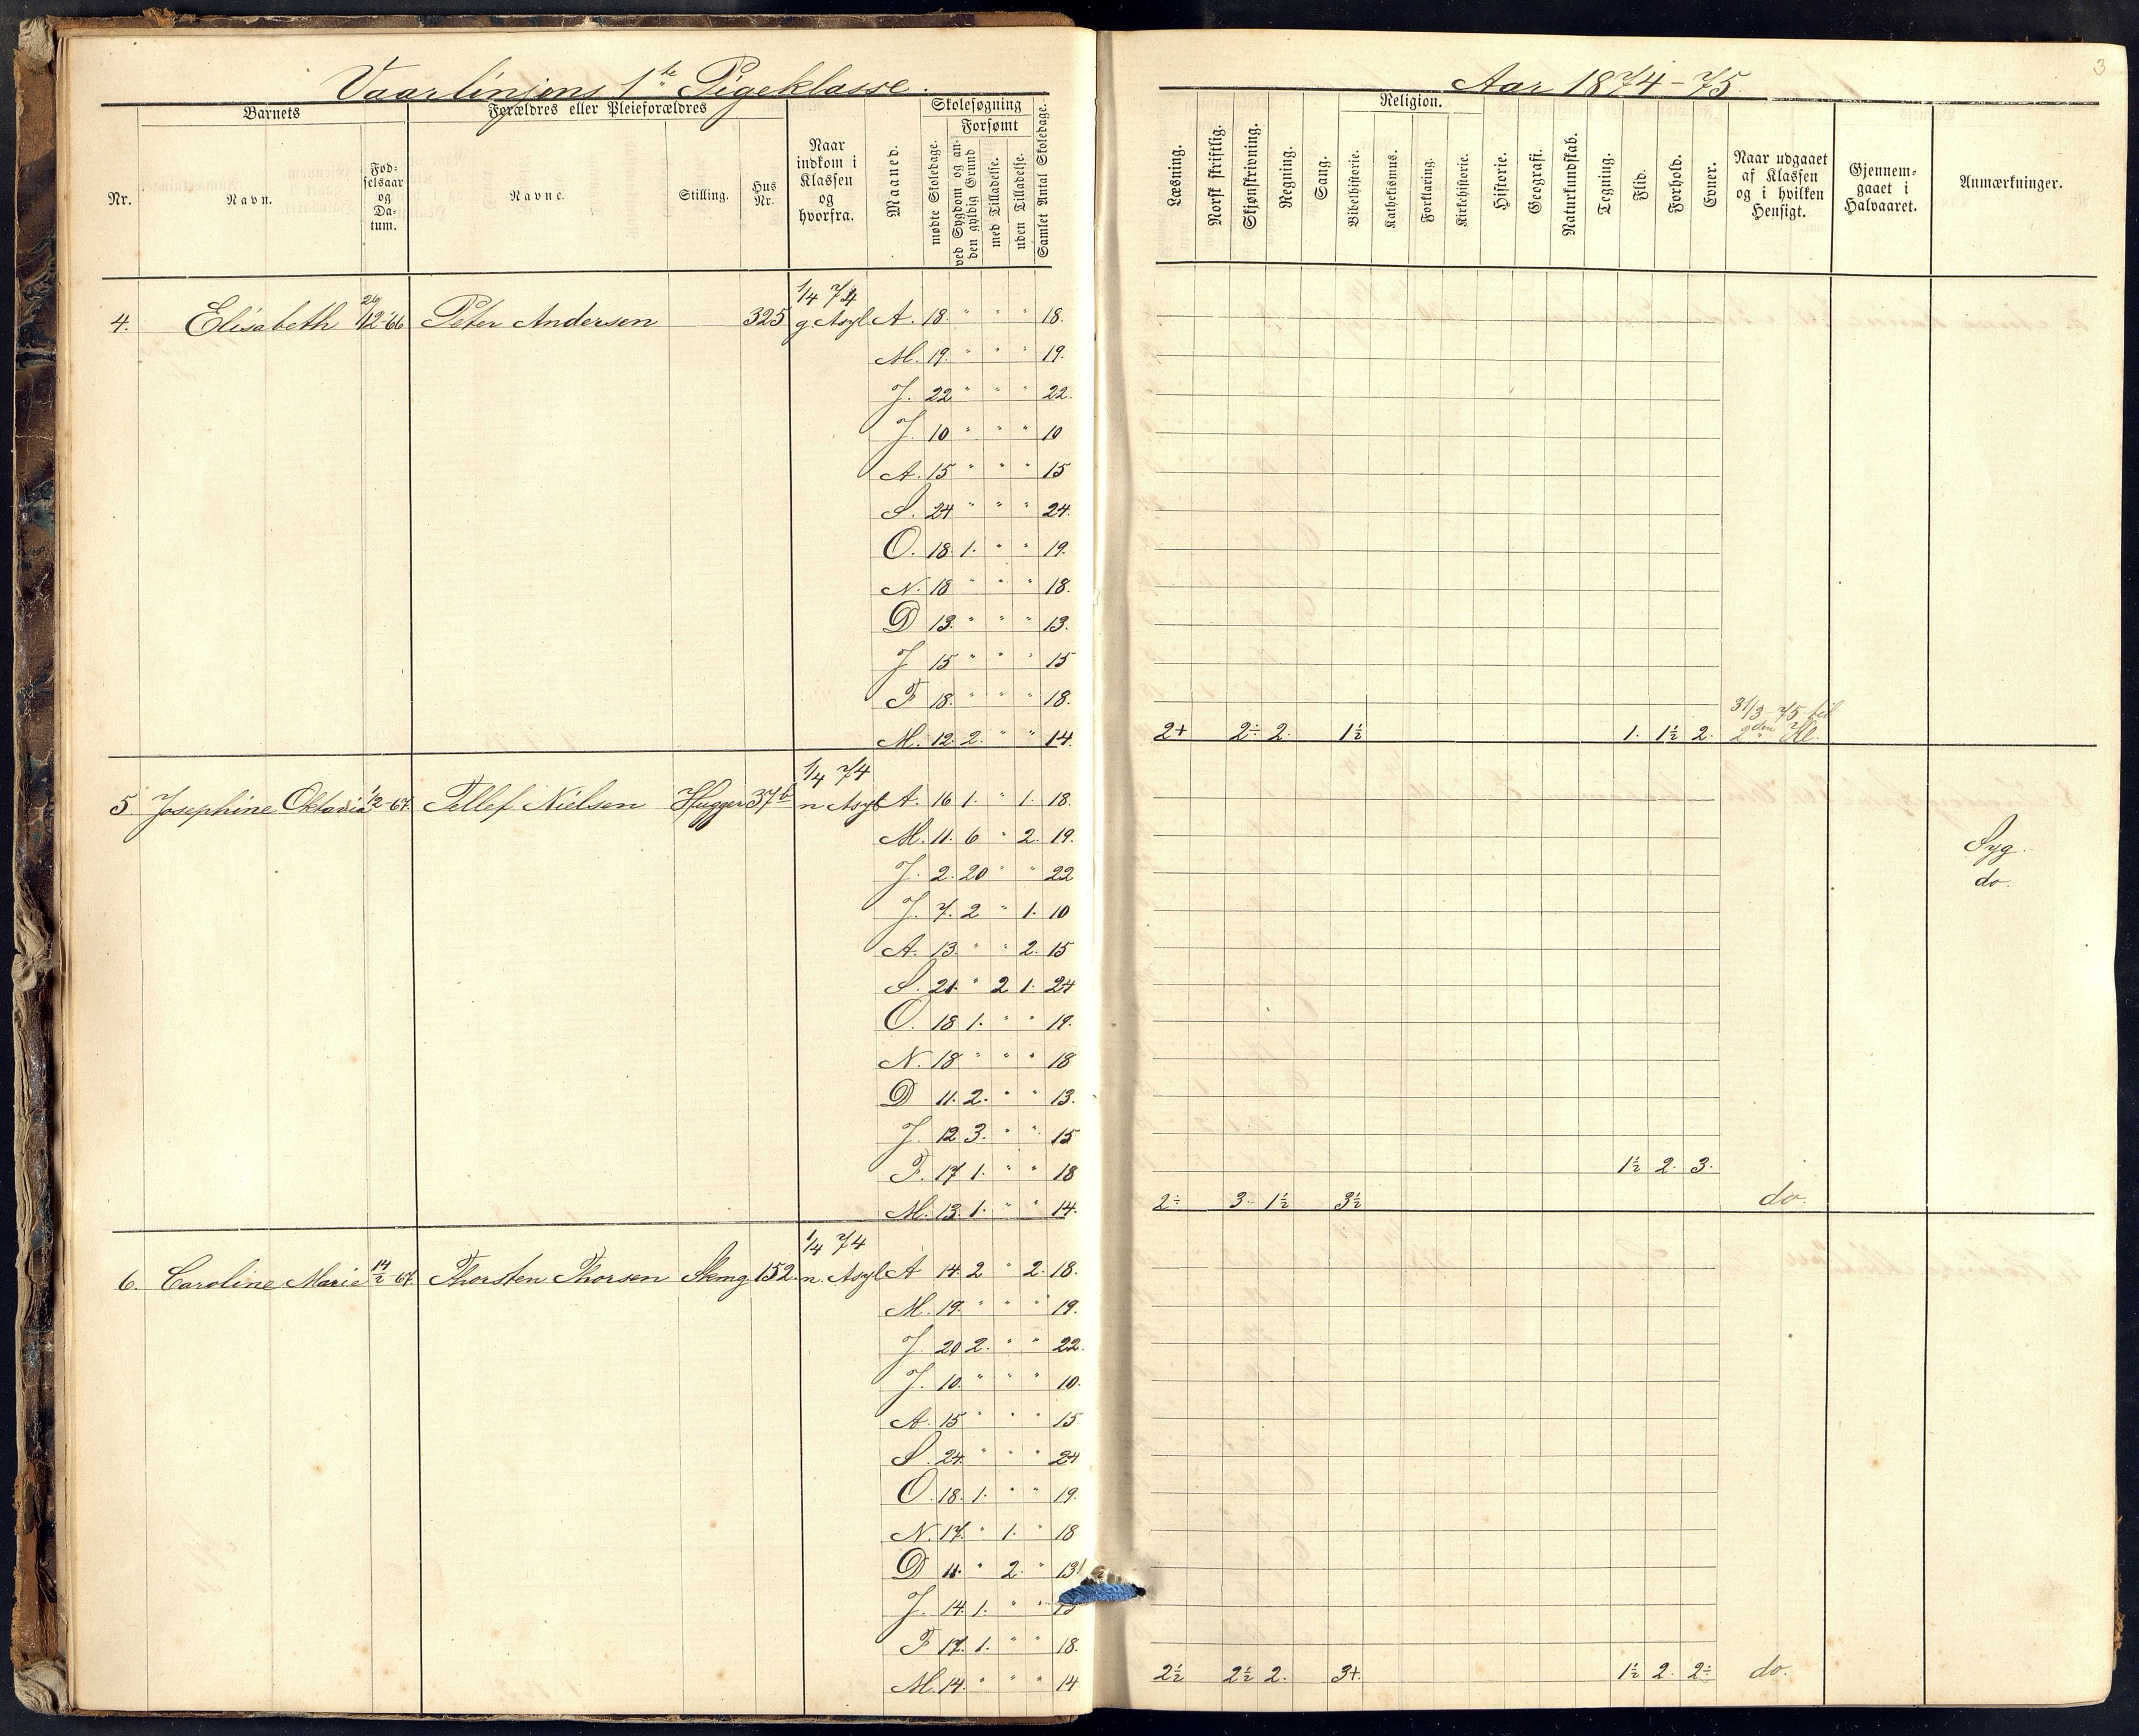 Vaarlinjens 1ste Pigeklasse.
Aar 1874-75.
3
Barnets
Forældres eller Pleieforældres
Skolesøgning
Forsømt
Nr.
Navn.
Fød-
selsaar
og
Da-
tum.
Navne.
Stilling.
Hus
Nr.
Naar
indkom i
Klassen
og
hvorfra.
Maaned.
mødte Skoledage.
ved Sygdom og an-
den gyldig Grund
med Tilladelse.
uden Tilladelse.
Samlet Antal Skoledage.
Læsning.
Norsk skriftlig.
Skjønskrivning.
Regning.
Sang.
Religion.
Bibelhistorie.
Kathekismus.
Forklaring.
Kirkehistorie.
Historie.
Geografi.
Naturkundskab.
Tegning.
Flid.
Forhold.
Evner.
Naar udgaaet
af Klassen
og i hvilken
Hensigt.
Gjennem-
gaaet i
Halvaaret.
Anmærkninger.
1/4 74
4. Elisabeth 26/12-66 Peter Andersen 325 g. Asyl A. 18 " " " 18.
M. 19. " " " 19.
J. 22 " " " 22.
J. 10 " " " 10
A. 15 " " " 15
S. 24 " " " 24.
O. 18. 1. " " 19.
N. 18 " " " 18.
D 13. " " " 13.
J 15 " " " 15
F 18. " " " 18.
M. 12. 2. " " 14. 2+ 2÷ 2. 1½ 1. 1½ 2. 31/3-75 til
2den Kl.
1/4 74
5. Josephine Oktavia 1/2-67. Tellef Nielsen Hugger 37b n Asyl A. 16 1. " 1. 18.
M. 11. 6 " 2. 19. Syg.
J. 2. 20 " " 22 do.
J. 7. 2 " 1. 10
A. 13. " " 2. 15
S. 21. " 2 1. 24
O. 18 1. " " 19.
N. 18 " " " 18
D 11. 2. " " 13.
J. 12 3. " " 15
F. 17 1. " " 18 1½ 2. 3.
M. 13. 1. " " 14. 2÷ 3. 1½ 3½ do.
1/4 74
6. Caroline Marie 14/2-67. Thorsten Thorsen Skmg 152. n. Asyl A 14. 2 " 2. 18.
M. 19. " " " 19.
J. 20 2. " " 22.
J. 10. " " " 10.
A. 15 " " " 15
S. 24. " " " 24
O. 18. 1. " " 19.
N. 17. " 1. " 18
D 11. " 2. " 13
J. 14. 1. " " 15
F 17. 1. " " 18.
M. 14. " " " 14 2½ 2½ 2. 3+. 1½ 2. 2÷ do.